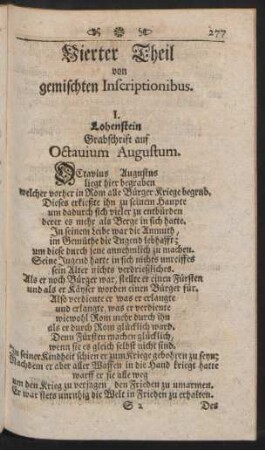 277
Vierter Theil
von
gemischten Inscriptionibus.
I.
Lohenstein
Grabschrift auf
Octavium Augustum.
OCtavius Augustus
liegt hier begraben
welcher vorher in Rom alle Bürger Kriege begrub.
Dieses erkießte ihn zu seinem Haupte
um dadurch sich vieler zu entbürden
derer es mehr als Berge in sich hatte.
In seinem Leibe war die Anmuth,
im Gemüthe die Tugend lebhafft;
um diese durch jene annehmlich zu machen.
Seine Jugend hatte in sich nichts unreiffes
sein Alter nichts verdrießliches.
Als er noch Bürger war, stellte er einen Fürsten
und als er Käyser worden einen Bürger für.
Also verdiente er was er erlangte
und erlangte, was er verdiente
wiewohl Rom mehr durch ihn
als er durch Rom glücklich ward.
Denn Fürsten machen glücklich,
wenn sie es gleich selbst nicht sind.
In seiner Kindheit schien er zum Kriege gebohren zu seyn;
Nachdem er aber aller Waffen in die Hand kriegt hatte
warff er sie alle weg
um den Krieg zu verjagen, den Frieden zu umarmen.
Er war stets unruhig die Welt in Frieden zu erhalten.
S 2 Des